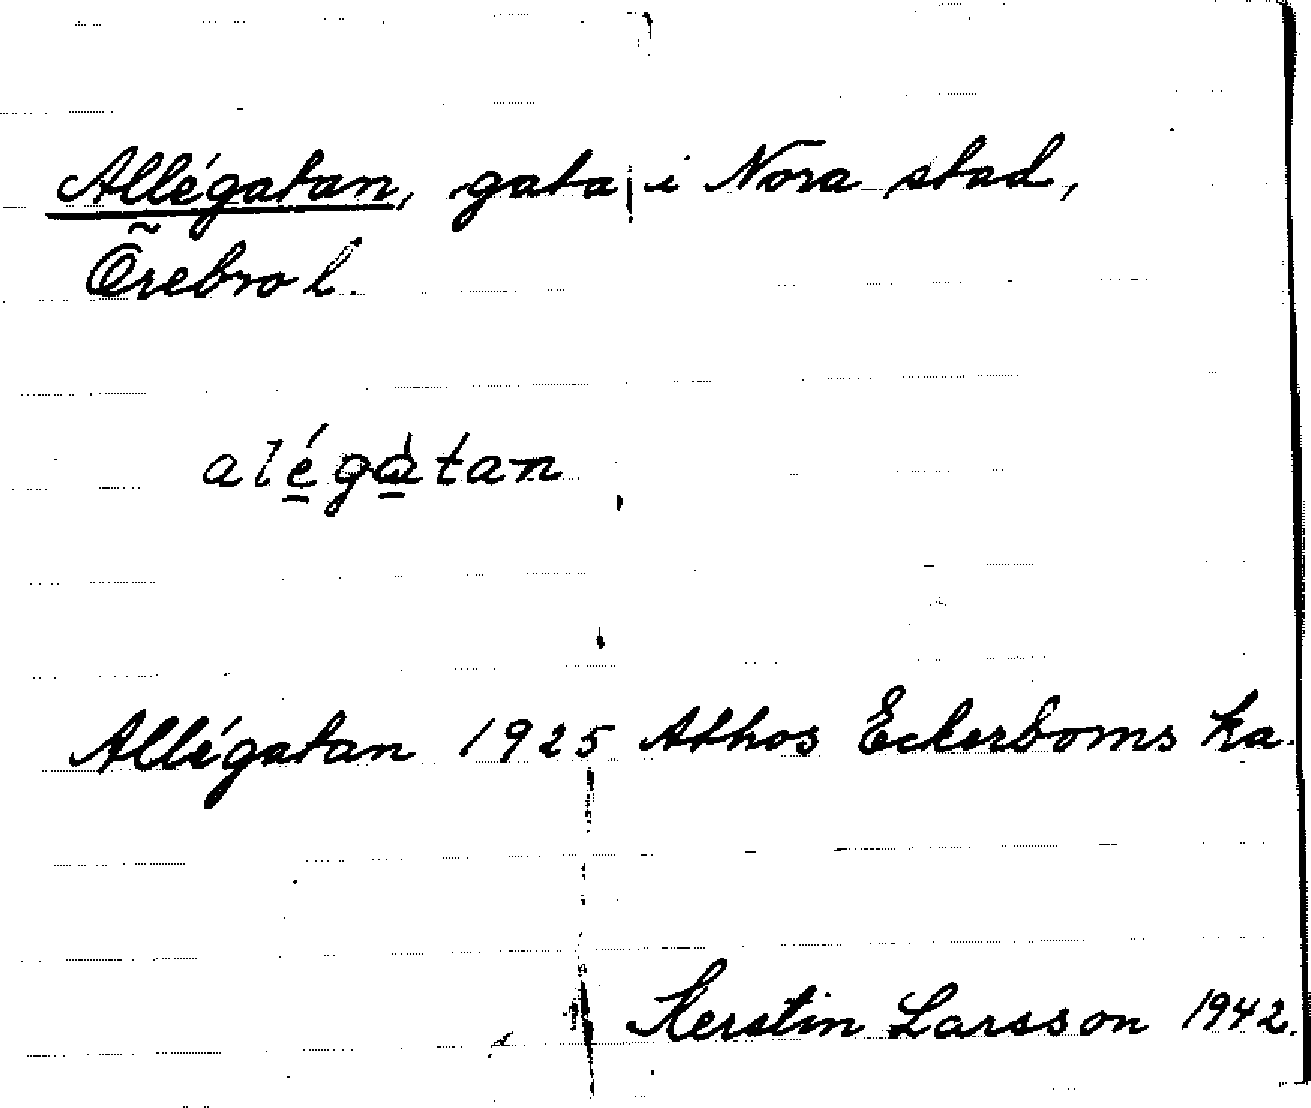 Allégatan, gata i Nora stad,
Örebro l.
alégàtan
Allégatan 1925 Athos Eckerboms ka.
Kerstin Larsson 1942.